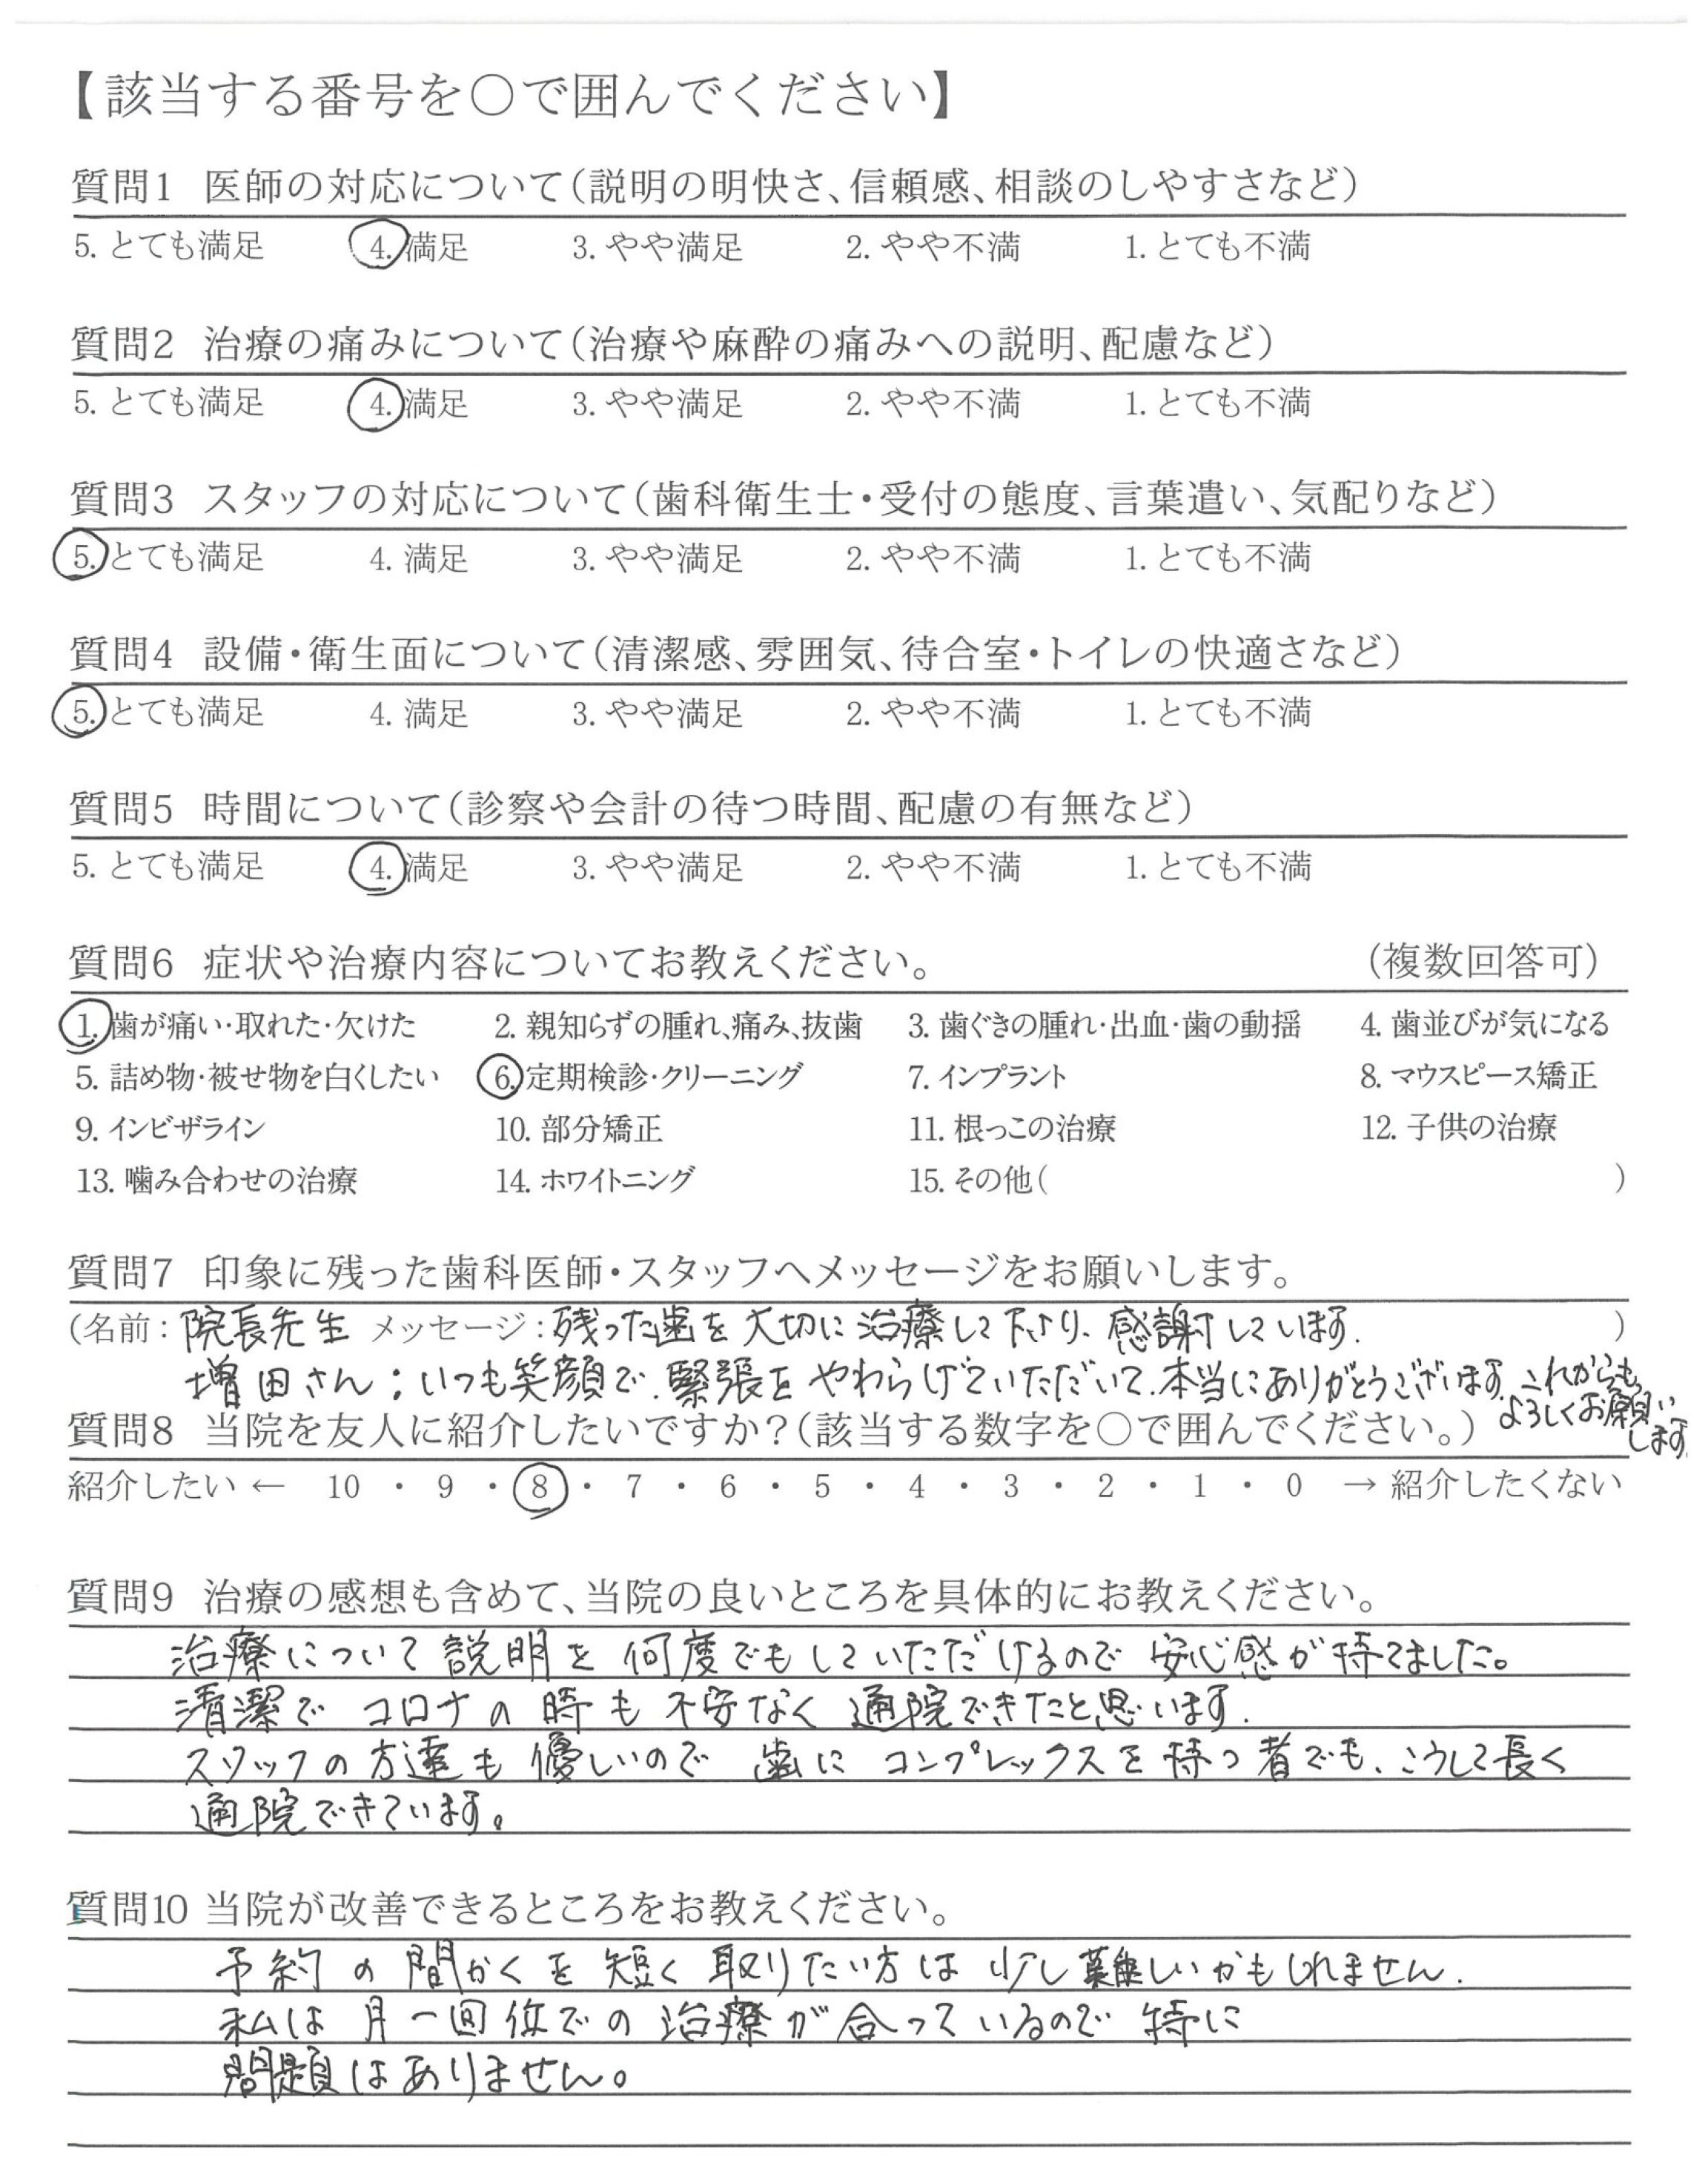 【該当する番号を○で囲んでください】
質問1 医師の対応について(説明の明快さ、信頼感、相談のしやすさなど)
5. とても満足 4. 満足 3. やや満足 2. やや不満 1. とても不満
質問2 治療の痛みについて(治療や麻酔の痛みへの説明、配慮など)
5. とても満足 4. 満足 3. やや満足 2. やや不満 1. とても不満
質問3 スタッフの対応について(歯科衛生士・受付の態度、言葉遣い、気配りなど)
5. とても満足 4. 満足 3. やや満足 2. やや不満 1. とても不満
質問4 設備・衛生面について(清潔感、雰囲気、待合室・トイレの快適さなど)
5. とても満足 4. 満足 3. やや満足 2. やや不満 1. とても不満
質問5 時間について(診察や会計の待つ時間、配慮の有無など)
5. とても満足 4. 満足 3. やや満足 2. やや不満 1. とても不満
質問6 症状や治療内容についてお教えください。 (複数回答可)
1. 歯が痛い・取れた・欠けた 2. 親知らずの腫れ、痛み、抜歯 3. 歯ぐきの腫れ・出血・歯の動揺 4. 歯並びが気になる
5. 詰め物・被せ物を白くしたい 6. 定期検診・クリーニング 7. インプラント 8. マウスピース矯正
9. インビザライン 10. 部分矯正 11. 根っこの治療 12. 子供の治療
13. 噛み合わせの治療 14. ホワイトニング 15. その他( )
質問7 印象に残った歯科医師・スタッフへメッセージをお願いします。
(名前：院長先生 メッセージ：残った歯を大切に治療して下さり、感謝しています. )
増田さん：いつも笑顔で、緊張をやわらげていただいて、本当にありがとうございます。これからも
よろしくお願い
します
質問8 当院を友人に紹介したいですか？(該当する数字を○で囲んでください。)
紹介したい ← 10 ・ 9 ・ 8 ・ 7 ・ 6 ・ 5 ・ 4 ・ 3 ・ 2 ・ 1 ・ 0 → 紹介したくない
質問9 治療の感想も含めて、当院の良いところを具体的にお教えください。
治療について説明を何度でもしていただけるので安心感が持てました。
清潔でコロナの時も不安なく通院できたと思います.
スタッフの方達も優しいので歯にコンプレックスを持つ者でも、こうして長く
通院できています。
質問10 当院が改善できるところをお教えください。
予約の間かくを短く取りたい方は少し難しいかもしれません.
私は月一回位での治療が合っているので特に
問題はありません。